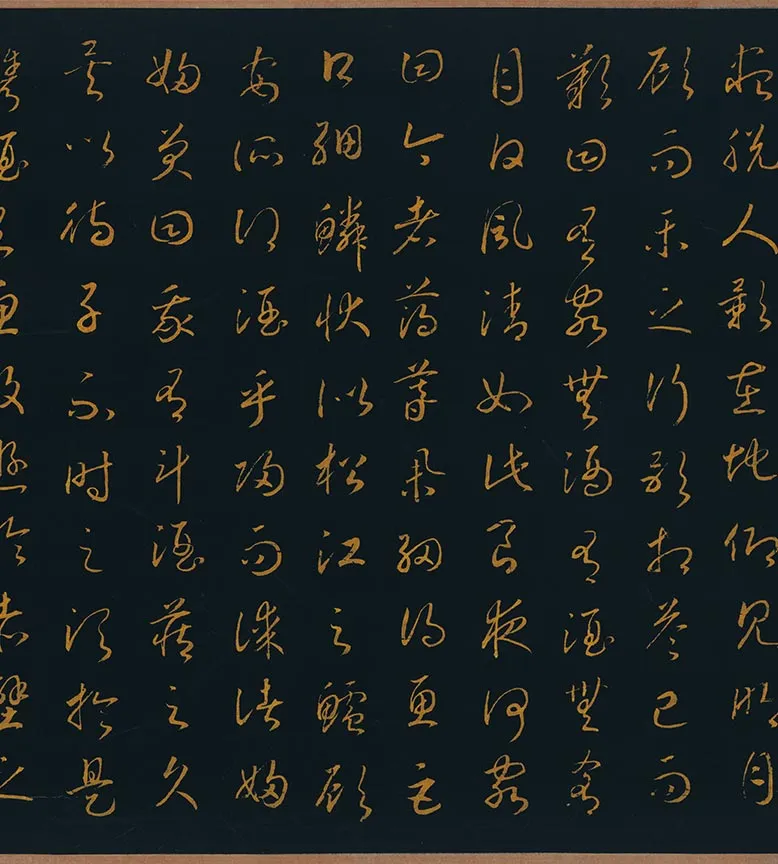 盡脫人影在地仰見明月
顧而樂之行歌相答已而
歎曰有客無酒有酒無肴
月白風清如此良夜何客
曰今者薄暮舉網得魚巨
口細鱗狀似松江之鱸顧
安所得酒乎歸而謀諸婦
婦笑曰我有斗酒藏之久
矣以待子不時之須於是
攜酒與魚復遊於赤壁之